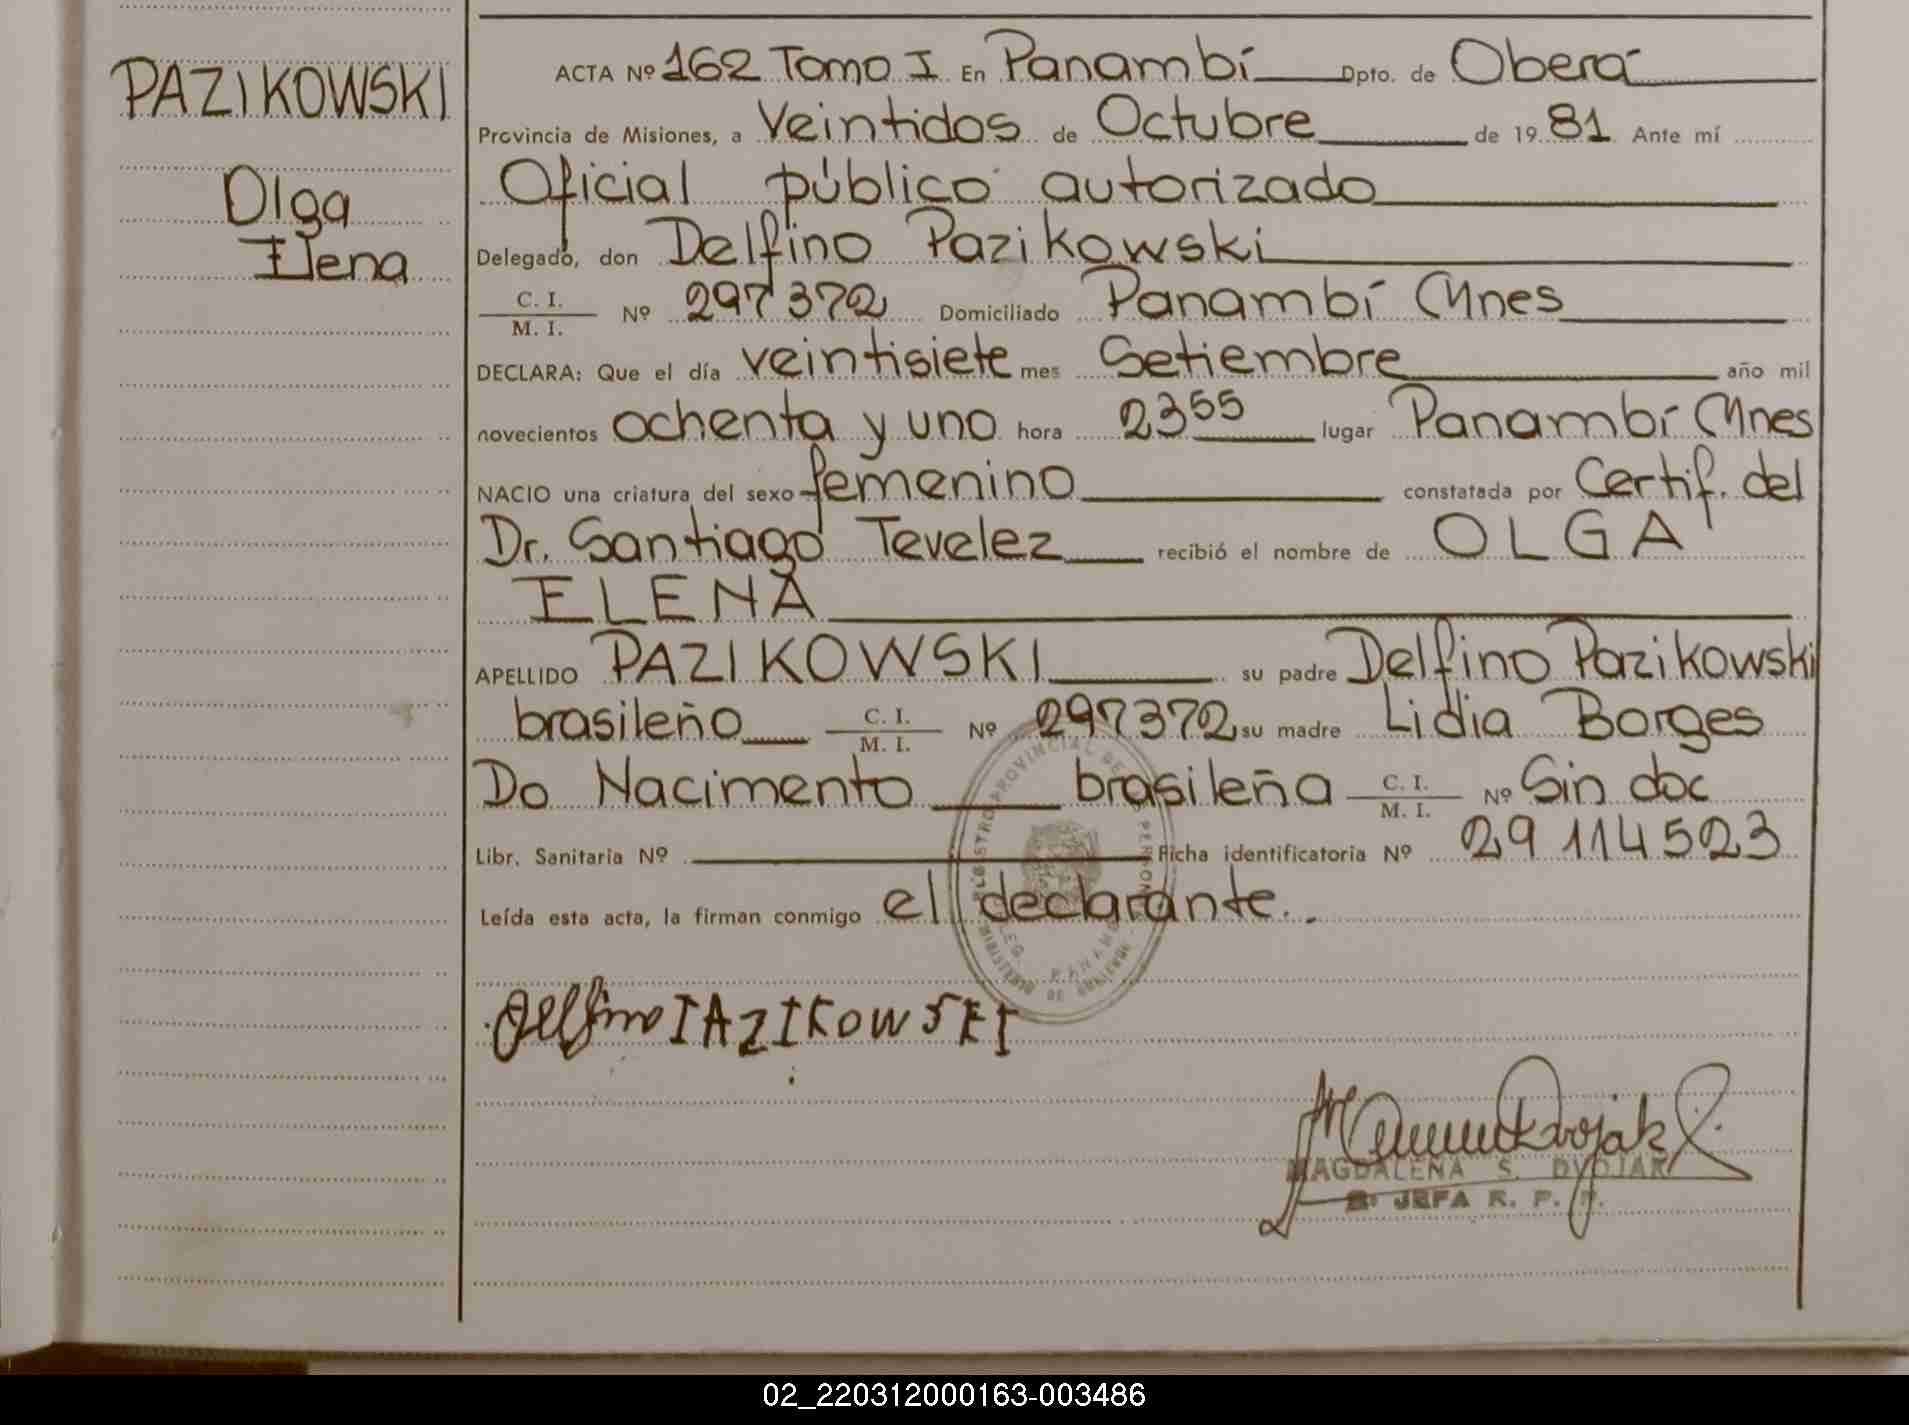 PAZIKOWSKI
Olga
Elena
ACTA Nº 162 Tomo I En Panambí Dpto. de Oberá
Provincia de Misiones, a Veintidos de Octubre de 19 81 Ante mí
Oficial público autorizado
Delegado, don Delfino Pazikowski
C. I.
M. I. Nº 297372 Domiciliado Panambí Mnes
DECLARA: Que el día veintisiete mes Setiembre año mil
novecientos ochenta y uno hora 23 55 lugar Panambí Mnes
NACIO una criatura del sexo femenino constatada por Certif. del
Dr. Santiago Tevelez recibió el nombre de OLGA
ELENA
APELLIDO PAZIKOWSKI su padre Delfino Pazikowski
brasileño C. I. M. I. Nº 297372 su madre Lidia Borges
Do Nacimento brasileña C. I. M. I. Nº Sin doc
Libr. Sanitaria Nº Ficha identificatoria Nº 29 114523
Leída esta acta, la firman conmigo el declarante..
Delfino PAZIKOWSKI
MAGDALENA S. DVOJAK
JEFA R. P. P.
02_220312000163-003486